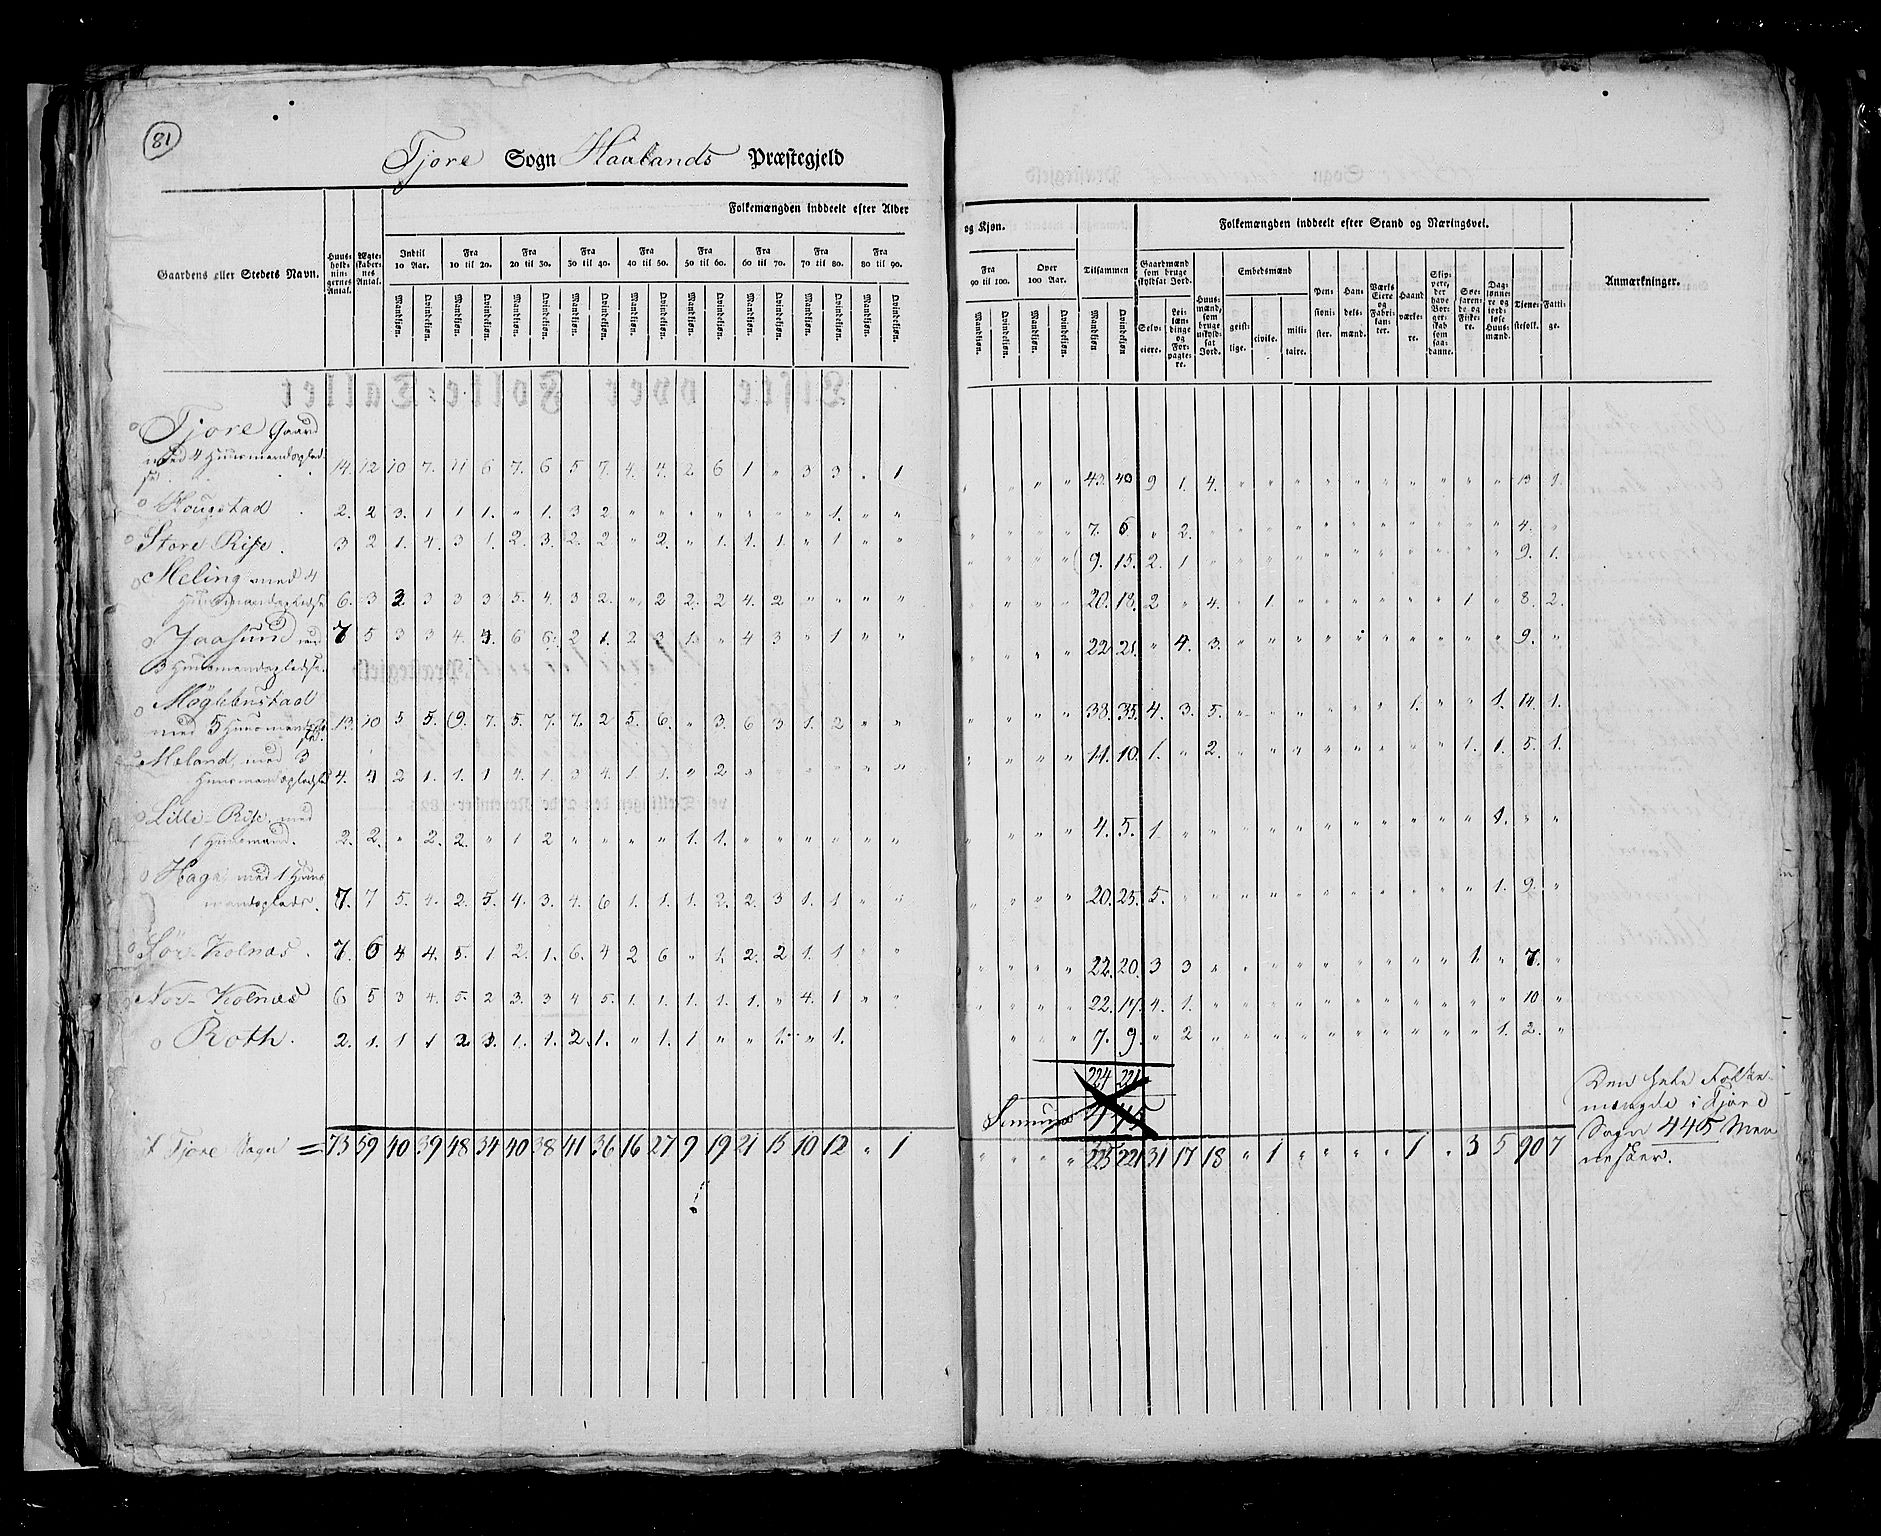 81
Tjore Sogn Haalands Præstegjeld
Folkemængden inddeelt efter Alder og Kjøn.
Folkemængden inddeelt efter Stand og Næringsvei.
Gaardens eller Stedets Navn.
Huus-holdnin-gernes Antal.
Ægte-skaber-nes Antal.
Indtil 10 Aar.
Fra 10 til 20.
Fra 20 til 30.
Fra 30 til 40.
Fra 40 til 50.
Fra 50 til 60.
Fra 60 til 70.
Fra 70 til 80.
Fra 80 til 90.
Fra 90 til 100.
Over 100 Aar.
Tilsammen
Mandkiøn. Qvindekiøn.
Gaardmænd som bruge skyldsat Jord.
Selv-eiere.
Lei-læn-dinge og For-pagte-re.
Huus-mænd, som bruge uskyld-sat Jord.
Embedsmænd
geist-lige. civile. mili-taire.
Pen-sioni-ster.
Han-dels-mænd.
Værks Eiere og Fabri-kan-ter.
Haand værke-re.
Skip-pere, der have Bor-ger-skab som saa-danne.
Søe-faren-de og Fiske-re.
Dag-lønne-re og jord-løse Huus-mænd.
Tjene-stefolk.
Fatti-ge.
Anmærkninger.
Tjore Gaard
med 4 Huusmandsplad-
se 14. 12 10 7. 11 6 7. 6 5 7. 4. 4. 2 6 1 " 3 3 " 1 " " " " 43. 40 9 1. 4. " " " " " " " " " " 13 1.
Hougstad 2. 2 3. 1 1 1. " 1. 3 2 " " " " " " " 1. " " " " " " 7. 6 " 2. " " " " " " " " " " " 4. "
Store Risse. 3 2 1. 4. 3 1. 2. 3. 2. 2 " 2. " 1. 1. 1. " 1 " " " " " " 9. 15. 2. 1 " " " " " " " " " " " 9. 1.
Meling med 4
Huusmandspladse 6. 3 3. 3 3 3 5. 4. 3 2. " 2 2. 2 4. 2 " " " " " " " " 20. 18. 2 " 4. " 1. " " " " " " 1 " 8. 2.
Jaasund med 7 5 3 3 4. 4. 6 6. 2 1. 2 3 1. " 4 3 " 1 " " " " " " 22 21. " 4. 3. " " " " " " " " " " 9. "
3 Huusmandspladse.
Møglebustad
med 5 Huusmandsplad- 13. 10 5 5. 9. 7. 5. 7. 7. 2 5. 6. " 3. 6 3 1. 2 " " " " " " 38. 35. 4. 3. 5. " " " " " " 1. " " 1. 14. 1.
Meland, med 3
Huusmandspladse 4. 4 2 1. 1. 1 4. 1. 3 4. 1. 1. " 2 " " " " " " " " " " 14. 10. 1. " 2. " " " " " " " " 1. 1. 5. 1.
Lille-Risse, med
1 Huusmand. 2. 2. " 2. 2. " 1 2 " " " " 1. 1. " " " " " " " " " " 4. 5. 1 " " " " " " " " " " " 1. " "
Haga, med 1 Huus
mandsplads. 7. 7 5. 4. 2. 5. 4. 3. 4. 6 1. 1. 1. 2. 2. 3 1. 1. " " " " " " 20. 25. 5. " " " " " " " " " " " 1. 9. "
Sör-Kolnæs. 7. 6 4 4. 5. 1 2. 1. 6. 4 2 6 " 1. 2. 2 1. 1 " " " " " " 22. 20. 3 3 " " " " " " " " " 1. " 7. "
Nor-Kolnæs 6 5 3 4. 5. 2 3. 3 4 5. 1. 1. 1. 1. 1. " 4. 1 " " " " " " 22. 17. 4. 1. " " " " " " " " " " " 10 "
Roth. 2. 1. 1 1 2. 3. 1. 1. 2. 1. " 1. 1 " " 1. " 1. " " " 7. 9. " 2 " " " " " " " " " " 1. 2. "
224 221
Summa 445
Tjore Sogn = 73 59 40 39 48 34 40 38 41 36 16 27 9 19 21 15 10 12 " 1 " " " " 225 221 31 17 18 " 1 " " " " 1 " 3 5 90 7
Den hele Folke-
mængde i Tjore
Sogn 445 Men
nesker.